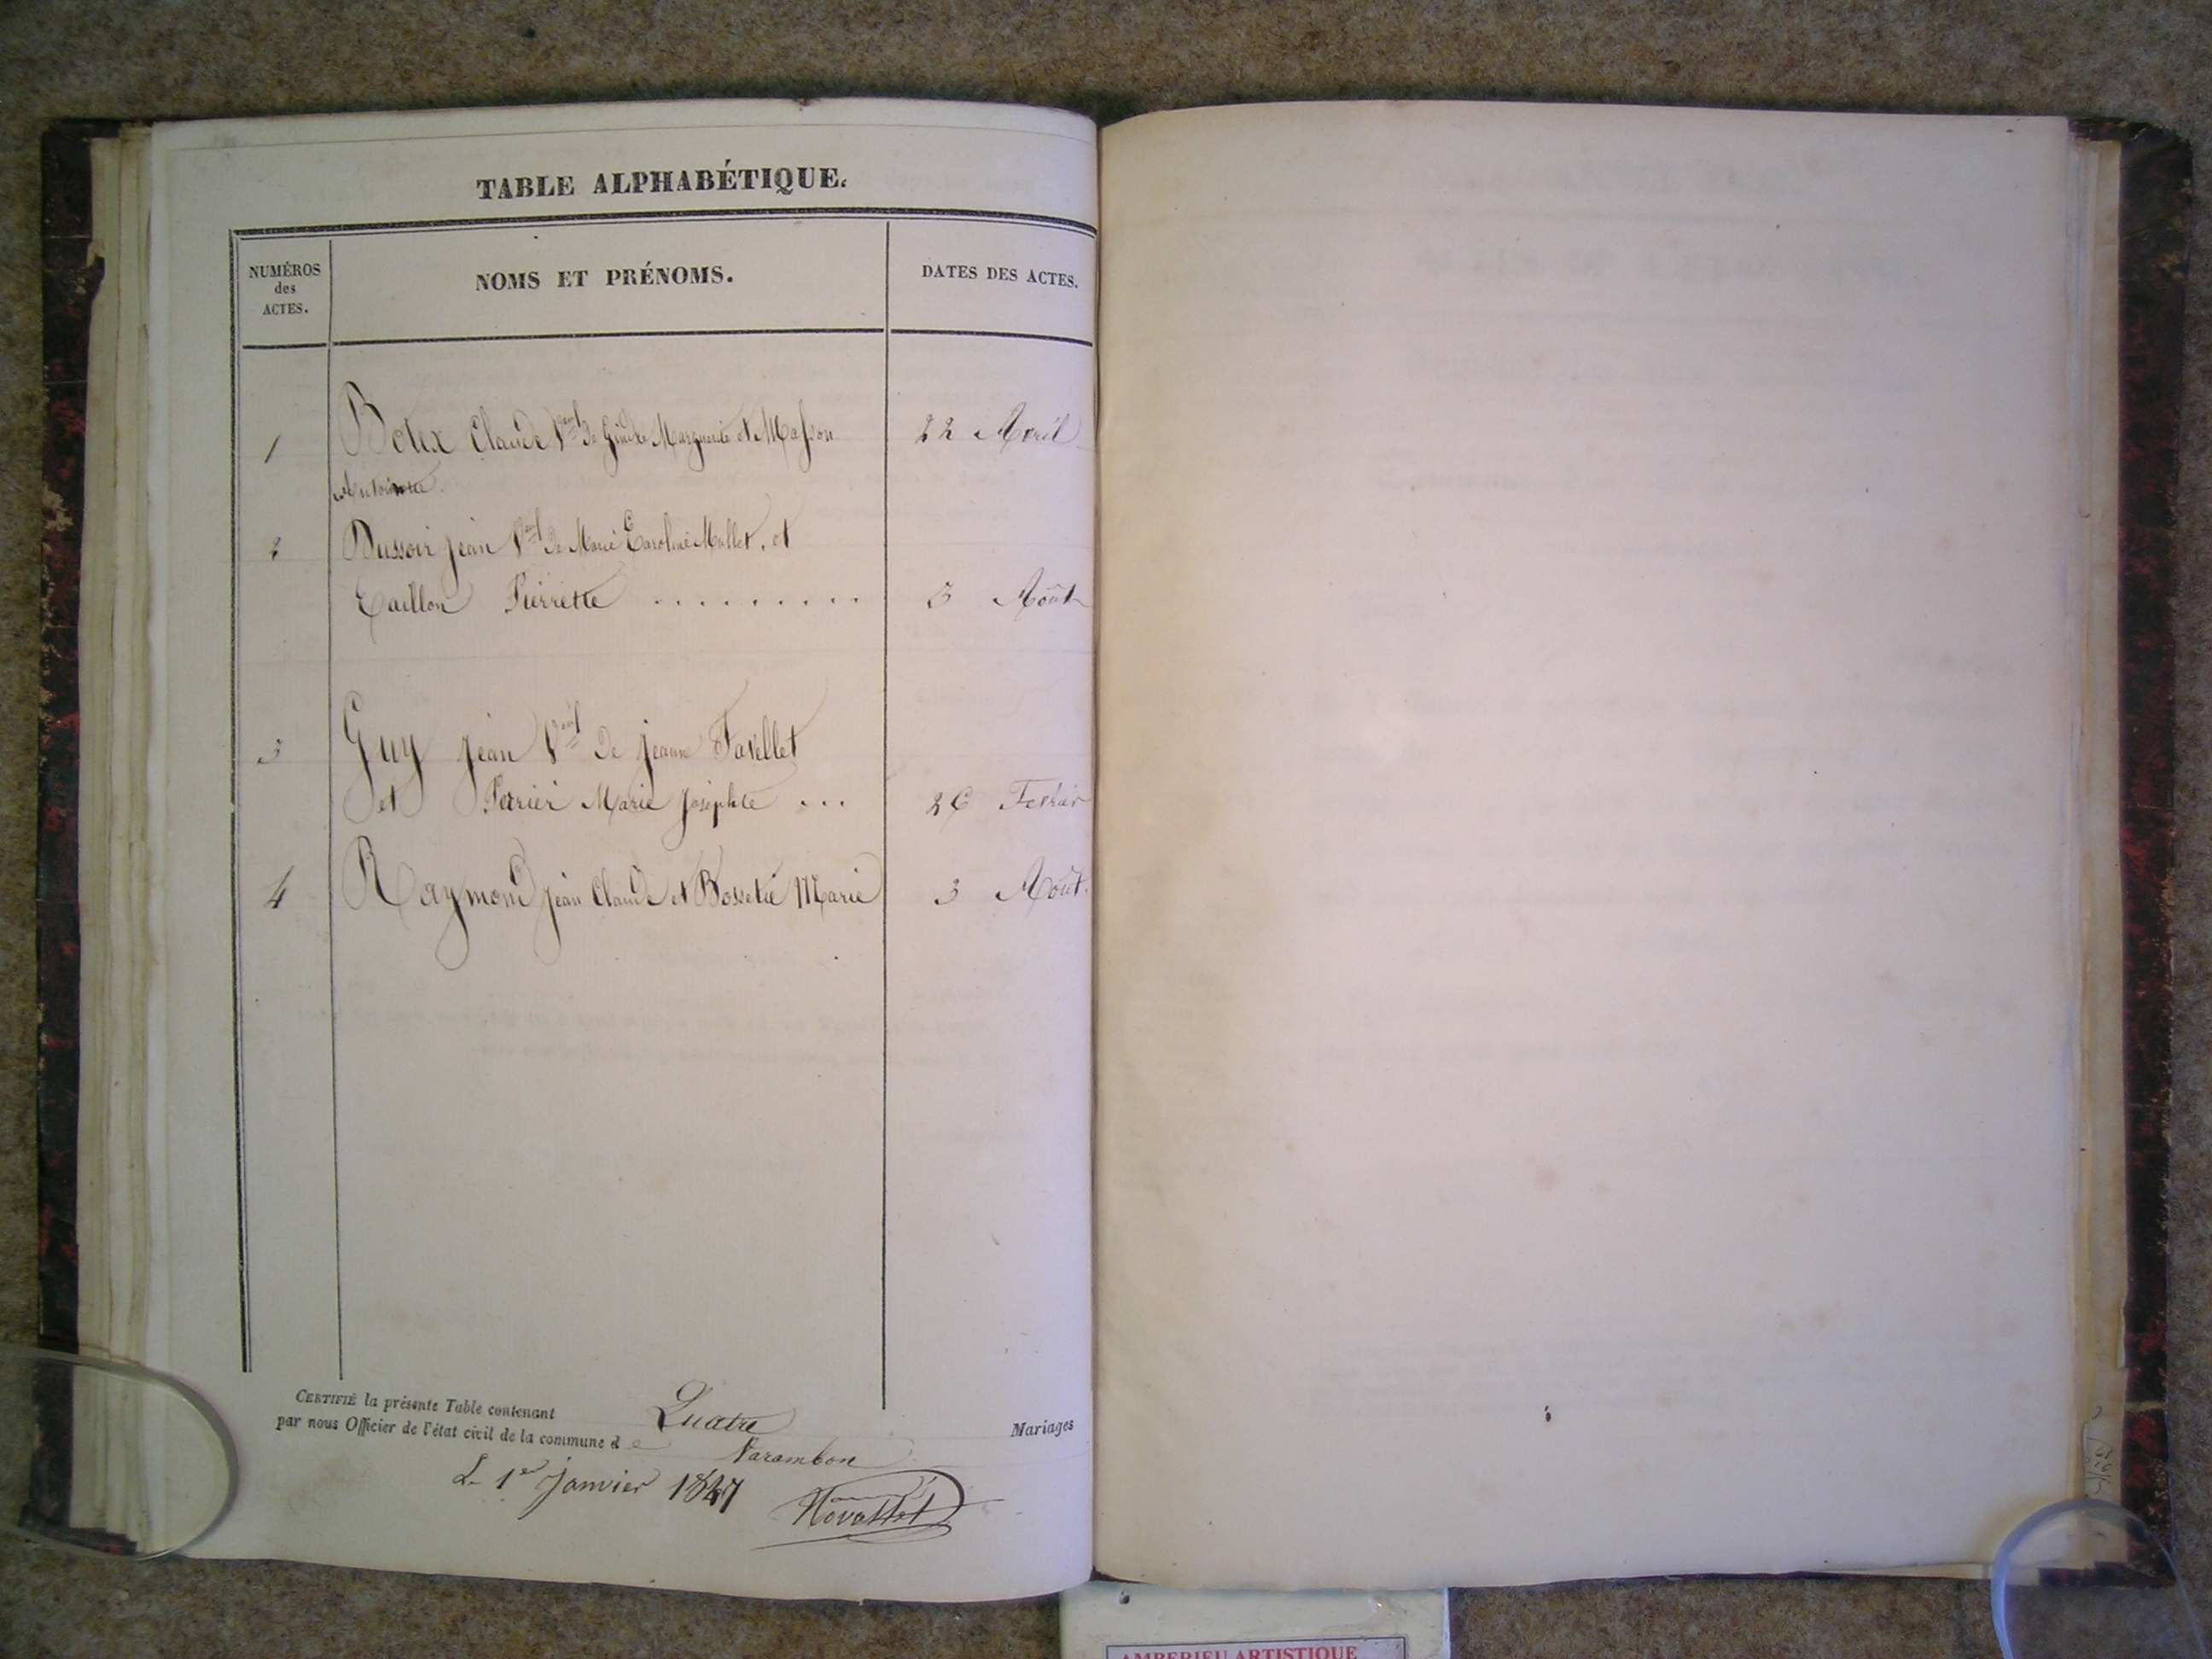 TABLE ALPHABÉTIQUE.
NUMÉROS des ACTES.
NOMS ET PRÉNOMS.
DATES DES ACTES.
1 Botex Claude Veuf de Marguerite et Masson 22 Avril
Antoinette
2 Dussoir Jean Veuf de Marie Caroline Mallet, et
Taillon Pierrette ......... 5 Août
3 Guy Jean Veuf de Jeanne Favellet
et Perrier Marie Josephte ... 26
4 Raymond Jean Claude et Marie 3 Août.
CERTIFIÉ la présente Table contenant Quatre Mariages
par nous Officier de l'état civil de la commune de Varambon
Le 1er Janvier 1847
AMBERIEU ARTISTIQUE